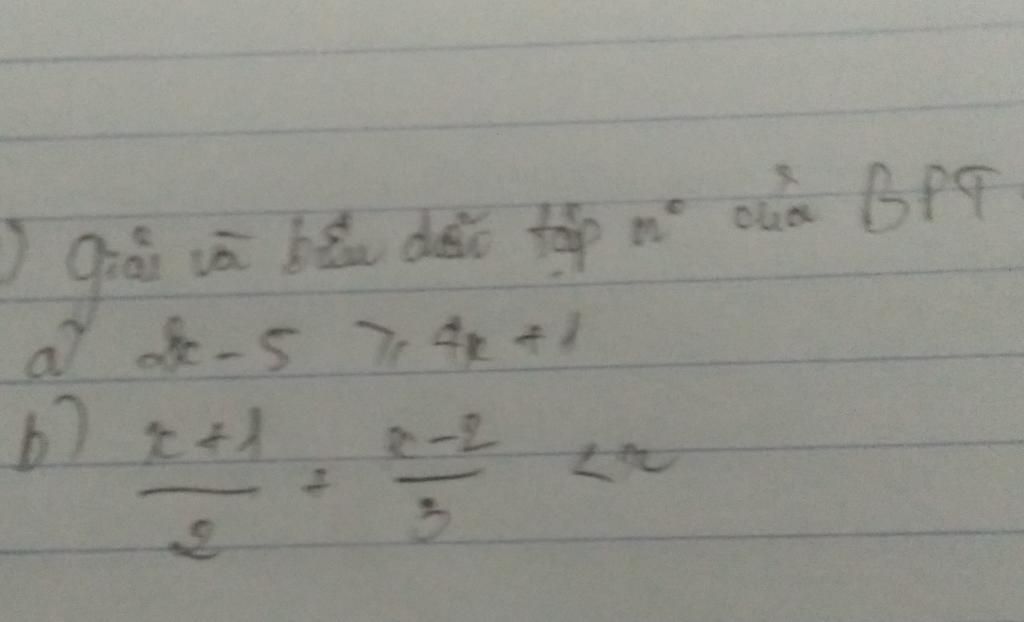 ) Giải và biểu diễn tập n° của BPT
a) 2x - 5 ≥ 4x + 1
b) \frac{x+1}{2} + \frac{x-2}{3} < x